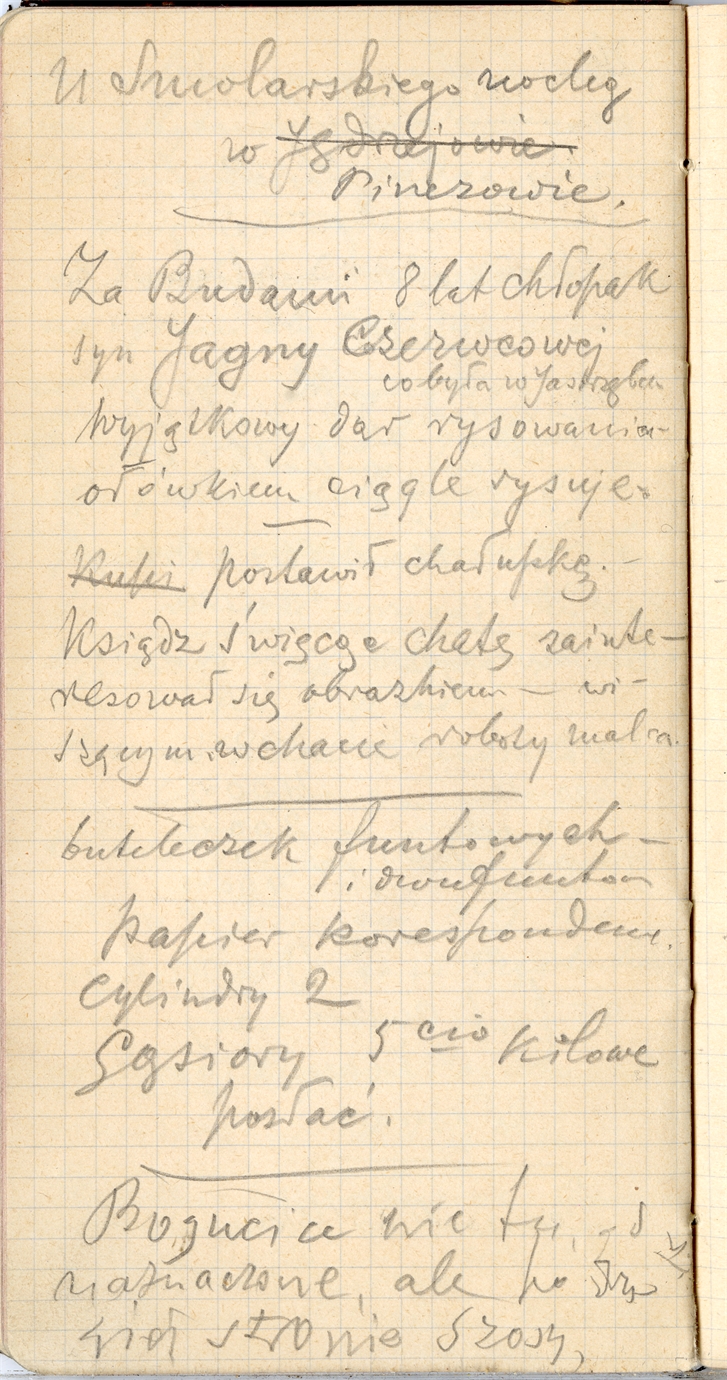 U Smolarskiego nocleg
w Jędrzejowie
Pinczowie.
Za Budami 8 lat chłopak
syn Jagny Czerwcowej
co była w Jastrzębcu
wyjątkowy dar rysowania-
ołówkiem ciągle rysuje.
Kupi postawił chałupkę.-
Ksiądz święcąc chatę zainte-
resował się obrazkiem - wi-
szącym w chacie roboty malca.
buteleczek funtowych -
i dwufuntow
Papier korespondenc.
Cylindry 2
Gąsiory 5cio kilowe
posłać.
Bogucice nie tu,
naznaczone, ale po
giej stronie szosy,